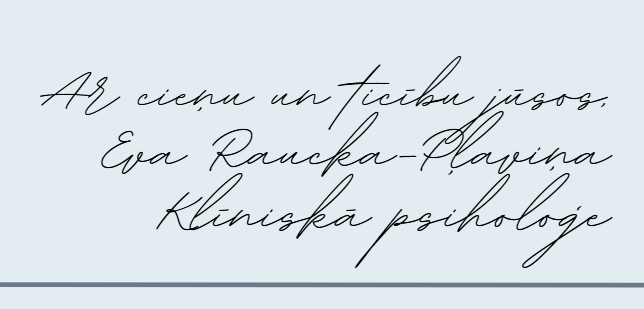 Ar cieņu un ticību jūsos,
Eva Raucka-Pļaviņa
Klīniskā psiholoģe